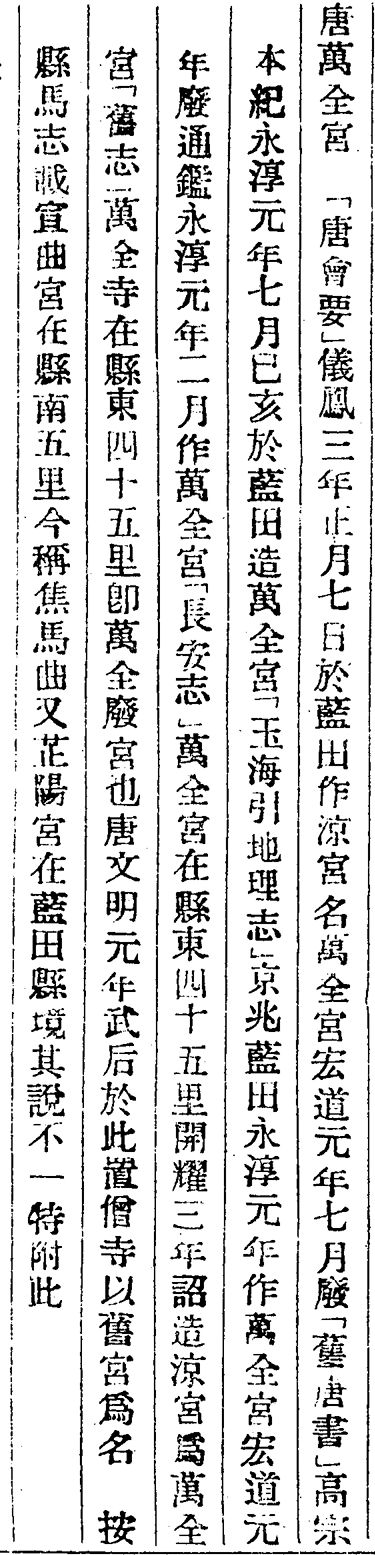 唐萬全宮　「唐會要」儀鳳三年正月七日於藍田作涼宮名萬全宮宏道元年七月廢「舊唐書」高宗
本紀永淳元年七月已亥於藍田造萬全宮「玉海引地理志」京兆藍田永淳元年作萬全宮宏道元
年廢通鑑永淳元年二月作萬全宮「長安志」萬全宮在縣東四十五里開耀三年詔造涼宮爲萬全
宮「舊志」萬全寺在縣東四十五里卽萬全廢宮也唐文明元年武后於此置僧寺以舊宮爲名　按
縣馬志誠宜曲宮在縣南五里今稱焦馬曲又芷陽宮在藍田縣境其說不一特附此